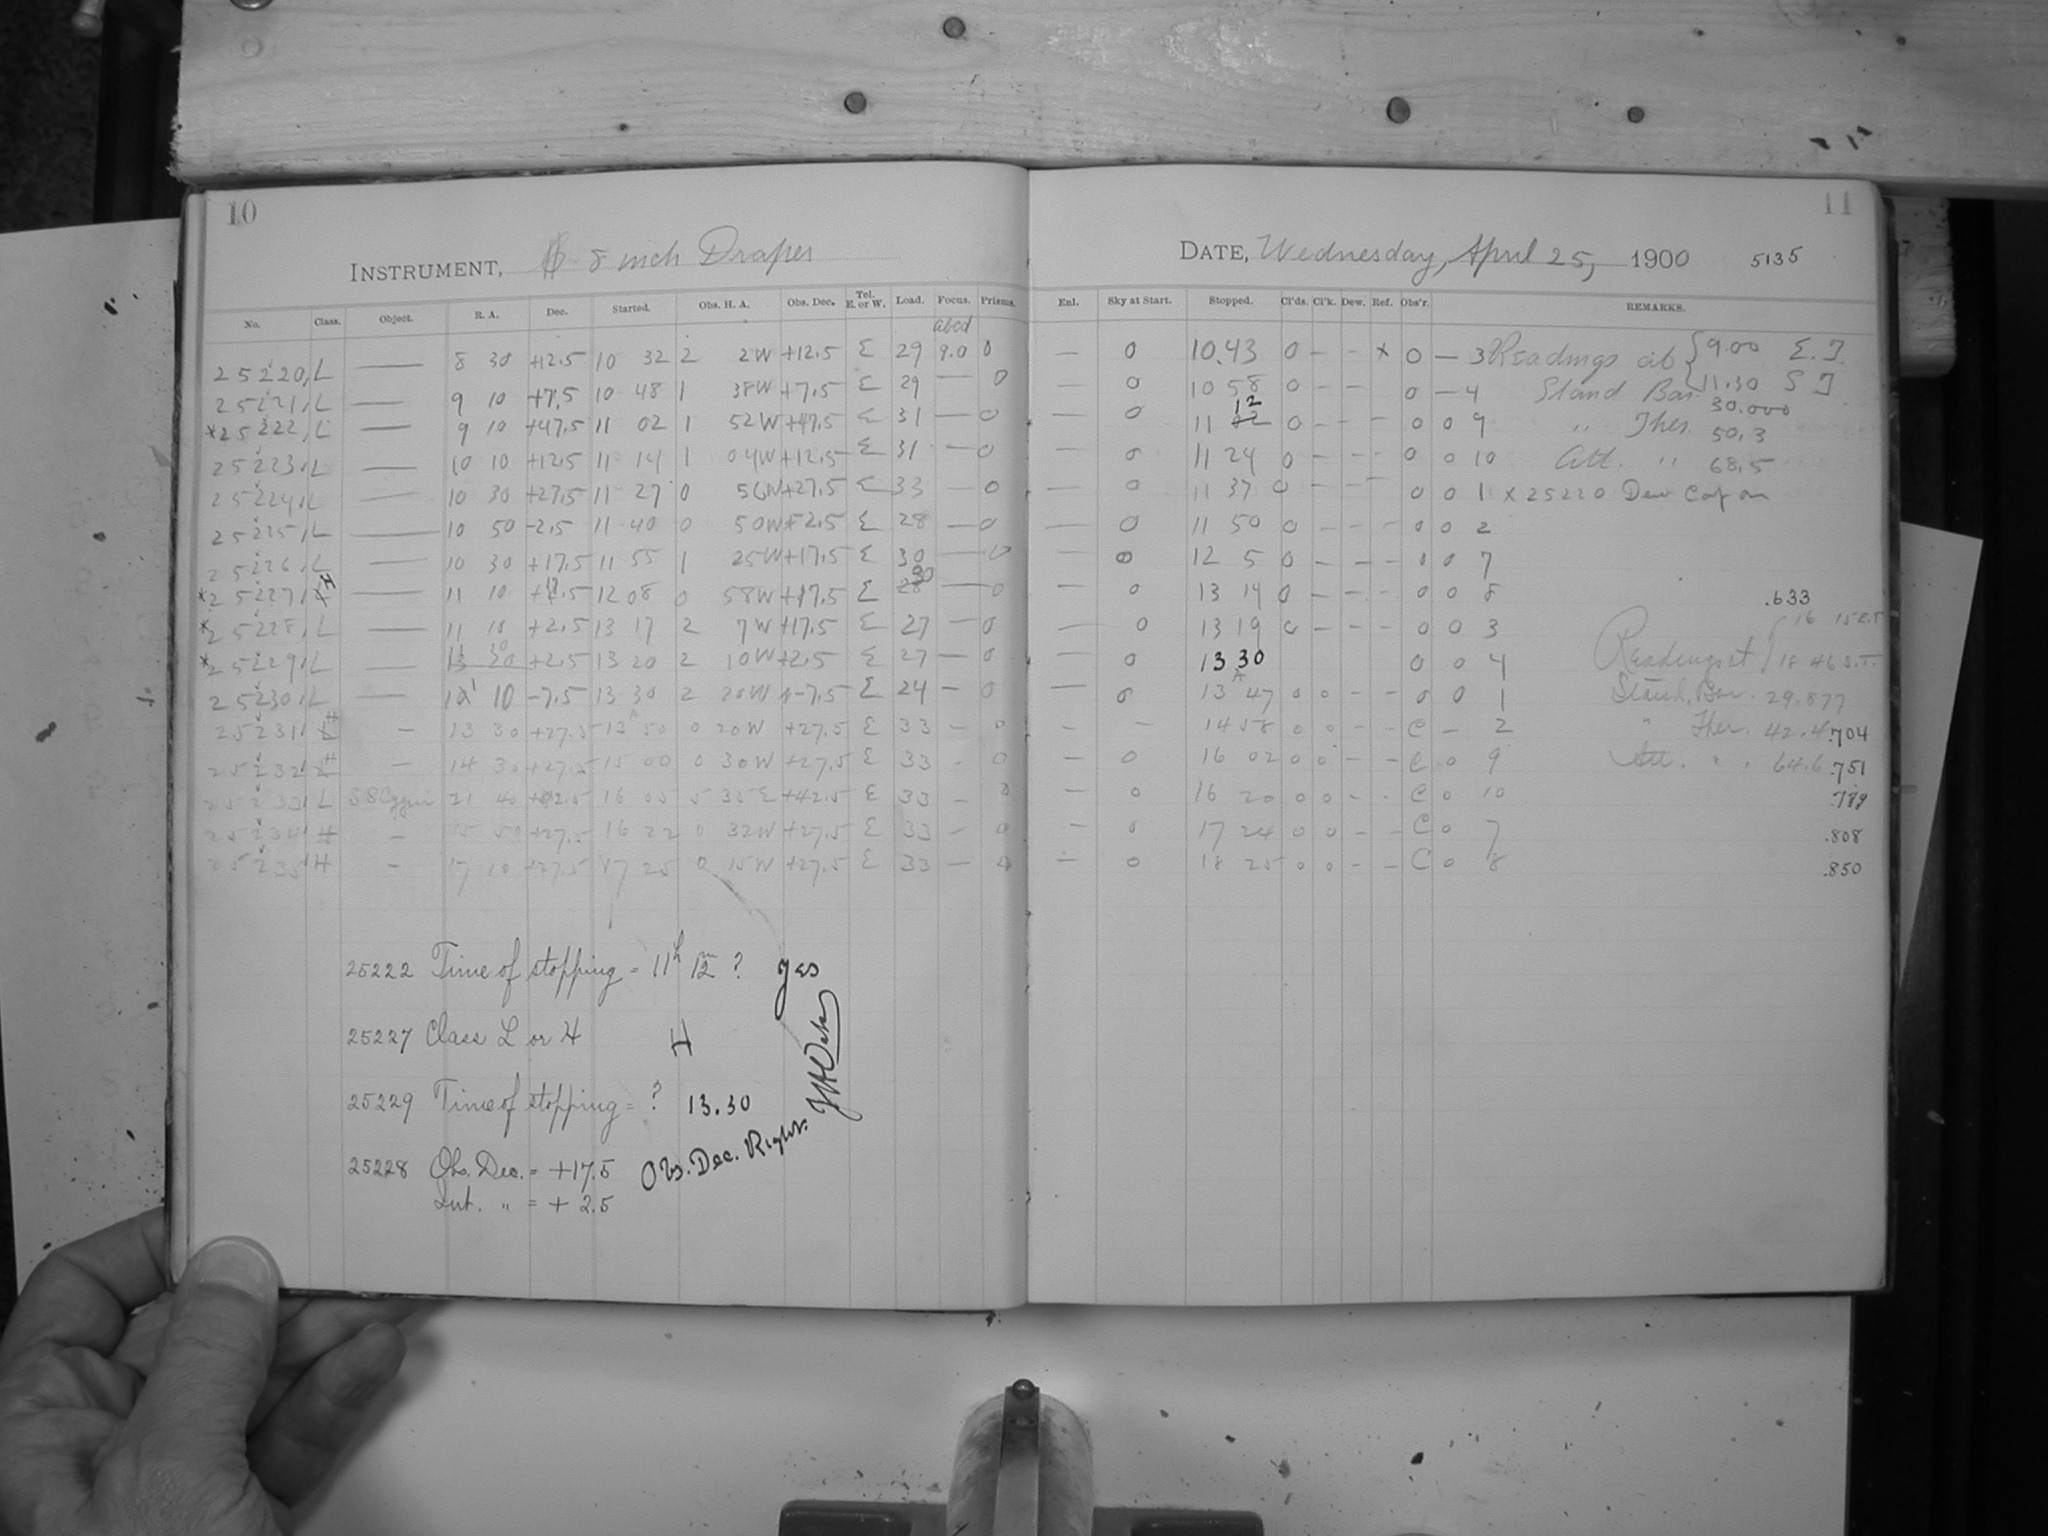 10
INSTRUMENT, 8 inch Draper
No. Class. Object. R. A. Dec. Started. Obs. H. A. Obs. Dec. Tel. E. or W. Load. Focus. Prisms.
abcd
25220 L — 8 30 +12.5 10 32 2 2W +12.5 E 29 9.0 0
25221 L — 9 10 +7.5 10 48 1 38W +7.5 E 29 — 0
*25222 L — 9 10 +47.5 11 02 1 52W +47.5 E 31 — 0
25223 L — 10 10 +12.5 11 14 1 04W +12.5 E 31 — 0
25224 L — 10 30 +27.5 11 27 0 56W +27.5 E 33 — 0
25225 L — 10 50 -2.5 11 40 0 50W -2.5 E 28 — 0
25226 L — 10 30 +17.5 11 55 1 25W +17.5 E 30 — 0
*25227 H — 11 10 +17.5 12 08 0 58W +17.5 E 30 — 0
*25228 L — 11 10 +2.5 13 17 2 7W +17.5 E 27 — 0
*25229 L — 11 10 +2.5 13 20 2 10W +2.5 E 27 — 0
25230 L — 11 10 -7.5 13 30 2 20W -7.5 E 24 — 0
25231 H — 13 30 +27.5 13 50 0 20W +27.5 E 33 — 0
25232 H — 14 30 +27.5 15 00 0 30W +27.5 E 33 - 0
25233 L SS Cygni 21 40 +42.5 16 05 5 35E +42.5 E 33 — 0
25234 H — 15 50 +27.5 16 22 0 32W +27.5 E 33 — 0
25235 H — 17 10 +27.5 17 25 0 15W +27.5 E 33 — 0
25222 Time of stopping = 11h 12m ? Yes
25227 Class L or H H
25229 Time of stopping = ? 13.30
25228 Obs. Dec. = +17.5 Obs. Dec. Right.
Int. " = + 2.5
11
DATE, Wednesday, April 25, 1900 5135
Enl. Sky at Start. Stopped. Cl'ds. Cl'k. Dew. Ref. Obs'r. REMARKS.
— 0 10.43 0 - - x 0 — 3 Readings at { 9.00 E.T.
— 0 10 58 0 - - 0 — 4 Stand Bar. { 11.30 S T
— 0 11 12 0 - - - 0 0 9 " Ther. 30.000
50.3
— 0 11 24 0 - - - 0 0 10 Att. " 68.5
— 0 11 37 0 - - - 0 0 1 x 25220 Dew Cap on
— 0 11 50 0 - - - 0 0 2
— 0 12 5 0 - - - 0 0 7
— 0 13 14 0 - - - 0 0 8 .633
— 0 13 19 0 - - - 0 0 3 16 15 E.T.
— 0 13 30 0 0 4 Readings at 18 46 S.T.
— 0 13 47 0 0 - - 0 0 1 Stand. Bar. 29.877
- - 14 58 0 0 - - C - 2 " Ther. 42.4 .704
— 0 16 02 0 0 - - C 0 9 Att. " . 64.6 .751
— 0 16 20 0 0 - - C 0 10 .789
— 0 17 24 0 0 - - C 0 7 .808
— 0 18 25 0 0 - - C 0 8 .850